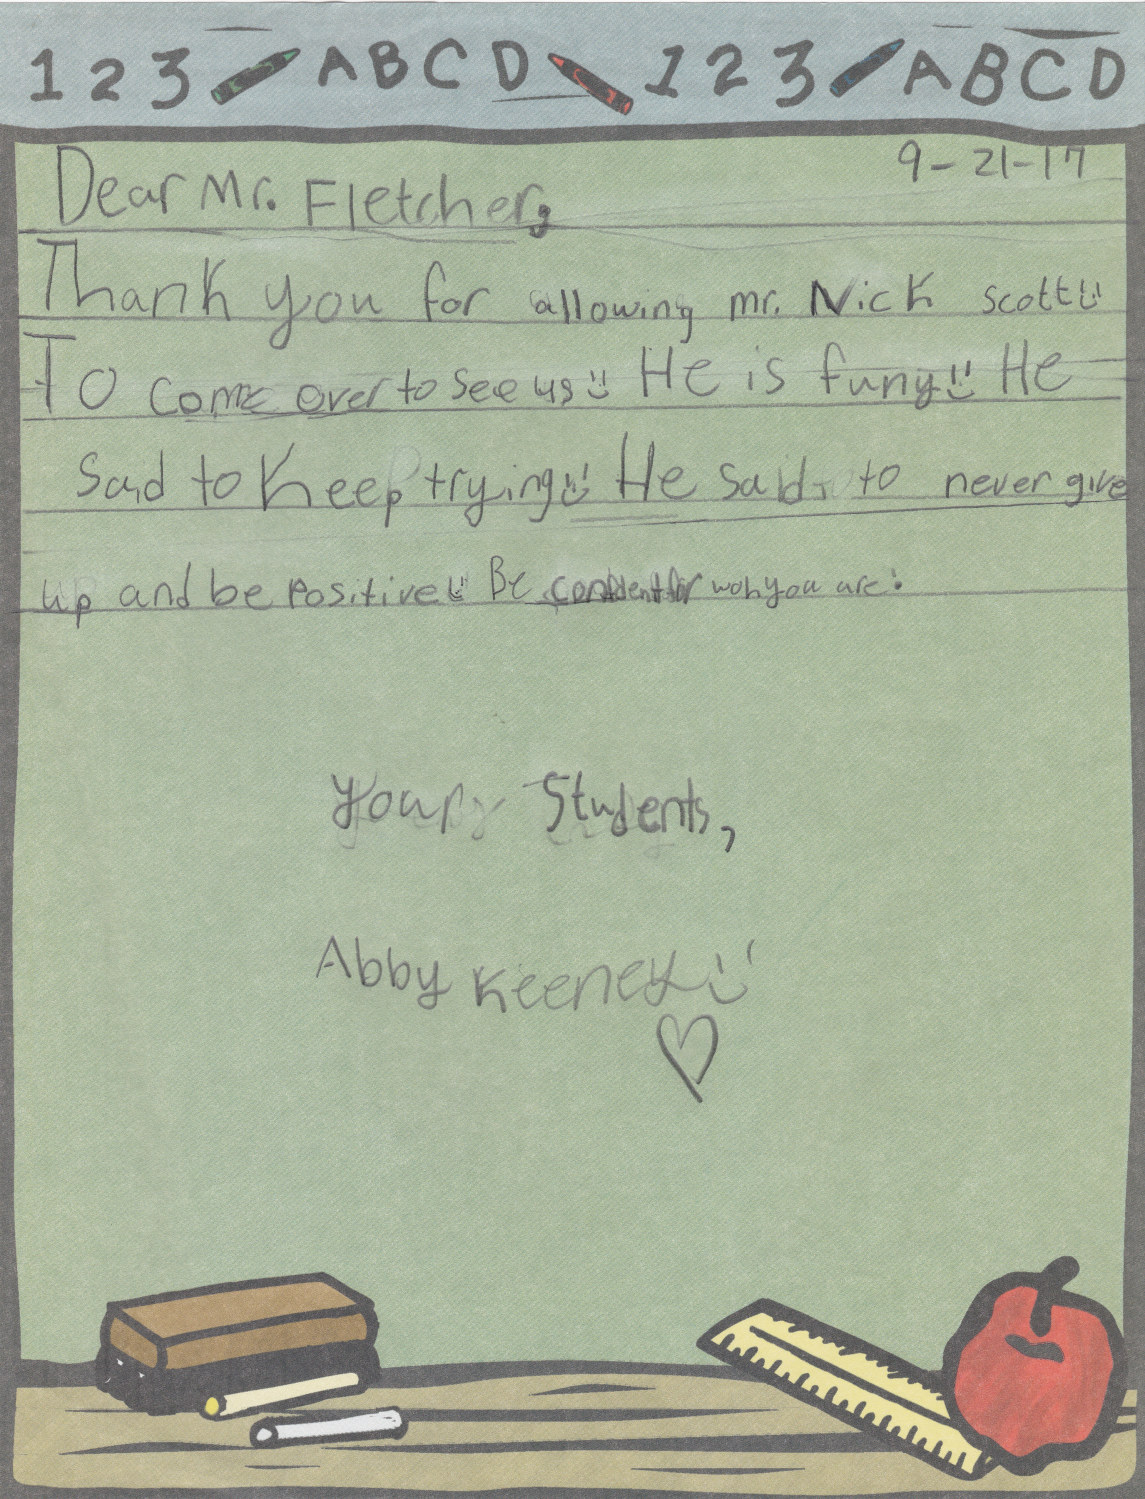 1 2 3 A B C D 1 2 3 A B C D
9-21-17
Dear Mr. Fletcher,
Thank you for allowing mr. Nick Scott
To come over to see us He is funy He
Said to Keep trying He said to never give
up and be Positive Be confident for woh you are!
Your Students,
Abby Keeney